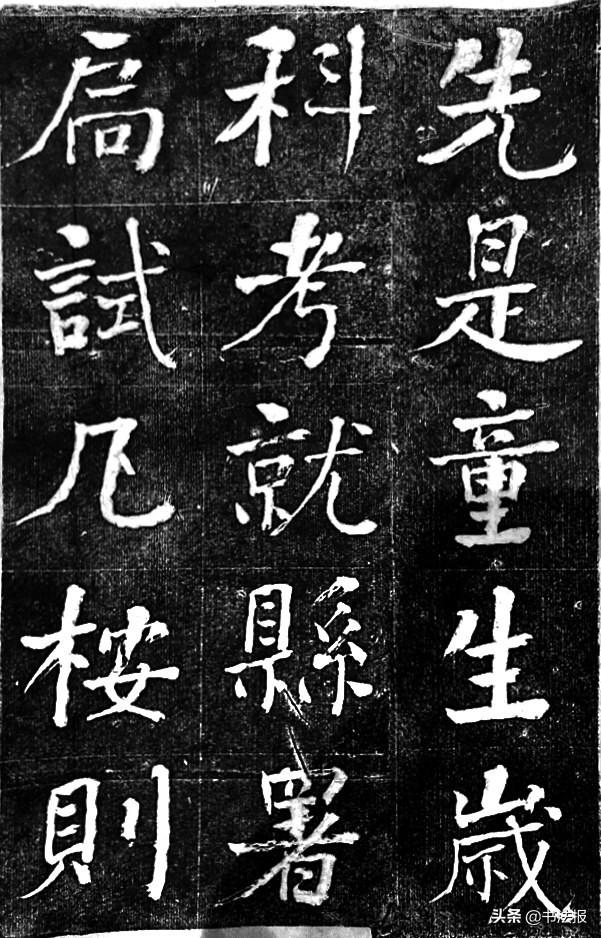 先是童生歲
科考就縣署
扃試几桉則
头条 @书法报